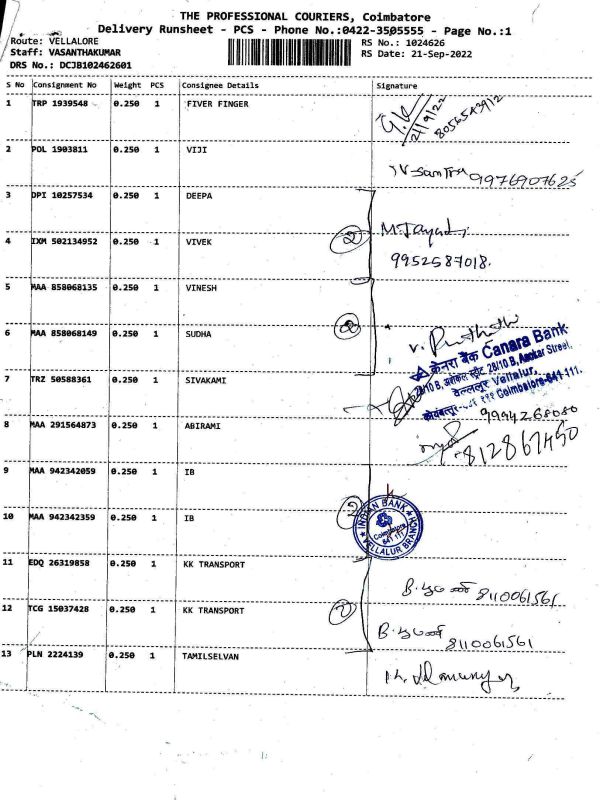 THE PROFESSIONAL COURIERS, Coimbatore
Delivery Runsheet - PCS - Phone No.:0422-3505555 - Page No.:1
Route: VELLALORE
RS No.: 1024626
Staff: VASANTHAKUMAR
RS Date: 21-Sep-2022
DRS No.: DCJB102462601
S No Consignment No Weight PCS Consignee Details Signature
1 TRP 1939548 0.250 1 FIVER FINGER
21/9/22
8056543912
2 POL 1903811 0.250 1 VIJI
9976907625
3 DPI 10257534 0.250 1 DEEPA
4 IXM 502134952 0.250 1 VIVEK ②
9952587018.
5 MAA 858068135 0.250 1 VINESH
②
6 MAA 858068149 0.250 1 SUDHA
केनरा बैंक Canara Bank
28/10 B, Asokar Street,
वेल्ललूर Vellalur,
Coimbatore-641 111.
7 TRZ 50588361 0.250 1 SIVAKAMI
9994268080
8 MAA 291564873 0.250 1 ABIRAMI
8128671450
9 MAA 942342059 0.250 1 IB
②
INDIAN BANK
Coimbatore
641 111
VELLALUR BRANCH
10 MAA 942342359 0.250 1 IB
11 EDQ 26319858 0.250 1 KK TRANSPORT
8110061561
12 TCG 15037428 0.250 1 KK TRANSPORT ②
8110061561
13 PLN 2224139 0.250 1 TAMILSELVAN